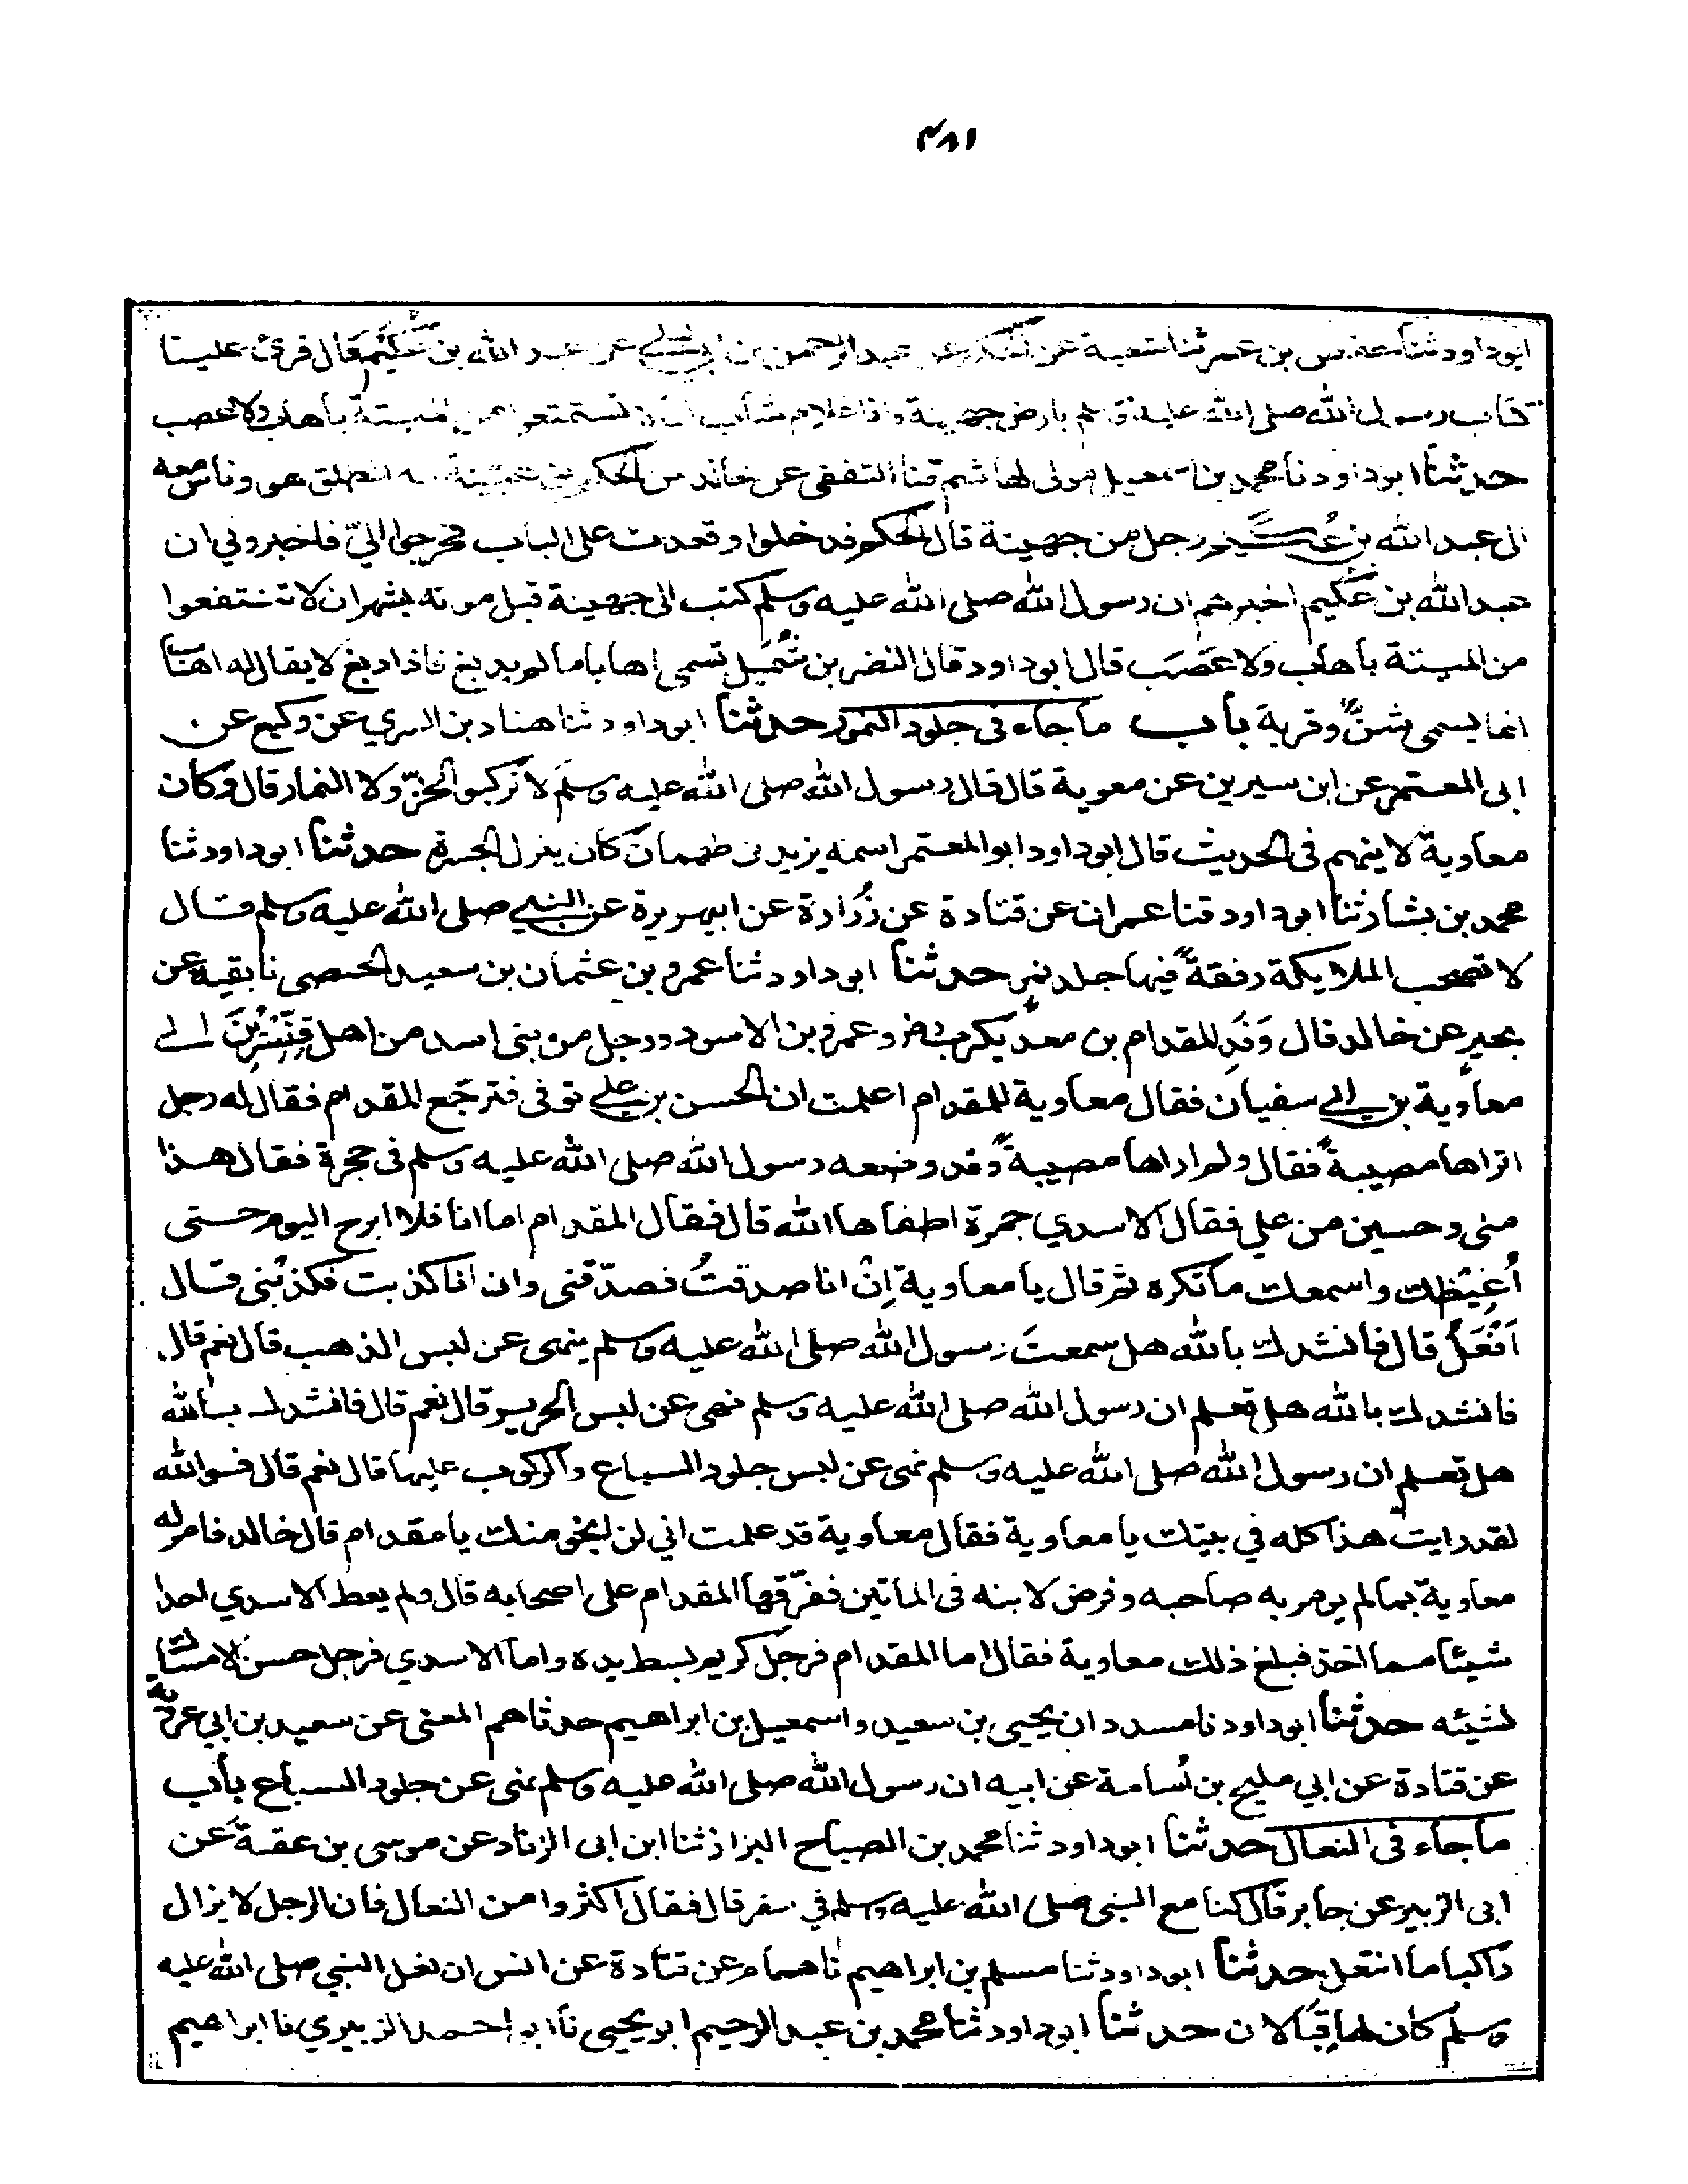 ٤٨١
ابوداود ثنا حفص بن عمر ثنا شعبة عن الحكم عن عبد الرحمن بن ابي ليلى عن عبد الله بن عُكَيْم قال قرئ علينا
كتاب رسول الله صلى الله عليه وسلم بارض جهينة وانا غلام شاب ان لا تستمتعوا من الميتة باهاب ولا عصب
حدثنا ابوداود نا محمد بن اسمعيل مولى بنى هاشم قثنا الثقفى عن خالد عن الحكم بن عتيبة انه انطلق هو وناس معه
الى عبد الله بن عُكَيم رجل من جهينة قال الحكم فدخلوا وقعدت على الباب فخرجوا اليّ فاخبروني ان
عبد الله بن عُكَيم اخبرهم ان رسول الله صلى الله عليه وسلم كتب الى جهينة قبل موته بشهر ان لا تنتفعوا
من الميتة باهاب ولا عَصَب قال ابوداود قال النضر بن شُمَيل تسمى اهابا مالم يدبغ فاذا دبغ لا يقال له اهاب
انما يسمى شنّ وقربة باب ما جاء في جلود النمور حدثنا ابوداود ثنا هناد بن السري عن وكيع عن
ابى المعتمر عن ابن سيرين عن معوية قال قال رسول الله صلى الله عليه وسلم لا تركبوا الخزّ ولا النمار قال وكان
معاوية لا يتهم فى الحديث قال ابوداود ابو المعتمر اسمه يزيد بن طهمان كان ينزل الحيرة حدثنا ابوداود ثنا
محمد بن بشار ثنا ابوداود قثنا عمران عن قتادة عن زُرارة عن ابيهريرة عن النبي صلى الله عليه وسلم قال
لا تصحب الملايكة رفقةً فيها جلد نمرٍ حدثنا ابوداود ثنا عمرو بن عثمان بن سعيد الحمصى نا بقية عن
بحيرٍ عن خالد قال وَفَدَ المقدام بن معد يكرب وعمرو بن الاسود ورجل من بنى اسد من اهل قِنَّسْرِينَ الى
معاوية بن ابي سفيان فقال معاوية للمقدام اعلمت ان الحسن بن علي توفى فترجّع المقدام فقال له رجل
اتراها مصيبةً فقال ولم لا اراها مصيبةً وقد وضعه رسول الله صلى الله عليه وسلم فى حجرة فقال هذا
منى وحسين من علي فقال الاسدي جمرة اطفاها الله قال فقال المقدام اما انا فلا ابرح اليوم حتى
اُغِيْظك واسمعك ما تكره ثم قال يا معاوية اِنْ انا صدقتُ فصدّقنى وان انا كذبت فكذبْنى قال
اَفْعَلُ قال فانشدك بالله هل سمعتَ رسول الله صلى الله عليه وسلم ينهى عن لبس الذهب قال نعم قال
فانشدك بالله هل تعلم ان رسول الله صلى الله عليه وسلم نهى عن لبس الحرير قال نعم قال فانشدك بالله
هل تعلم ان رسول الله صلى الله عليه وسلم نهى عن لبس جلود السباع والركوب عليها قال نعم قال فوالله
لقد رايت هذا كله في بيتك يا معاوية فقال معاوية قد علمت اني لن انجو منك يا مقدام قال خالد فامر له
معاوية بما لم يومر به صاحبه وفرض لابنه فى الماتين ففرّقها المقدام على اصحابه قال ولم يعط الاسدي احدا
شيئا مما اخذ فبلغ ذلك معاوية فقال اما المقدام فرجل كريم بسط يده واما الاسدي فرجل حسن الامساك
لشيئه حدثنا ابوداود نا مسدد ان يحيى بن سعيد واسمعيل بن ابراهيم حدثاهم المعنى عن سعيد بن ابي عروبة
عن قتادة عن ابي مليح بن اُسامة عن ابيه ان رسول الله صلى الله عليه وسلم نهى عن جلود السباع باب
ما جاء فى النعال حدثنا ابوداود ثنا محمد بن الصباح البزاز ثنا ابن ابى الزناد عن موسى بن عقبة عن
ابى الزبير عن جابر قال كنا مع النبى صلى الله عليه وسلم في سفر قال فقال اكثروا من النعال فان الرجل لا يزال
راكبا ما انتعل حدثنا ابوداود ثنا مسلم بن ابراهيم نا همام عن قتادة عن انس ان نعل النبي صلى الله عليه
وسلم كان لها قِبَالان حدثنا ابوداود ثنا محمد بن عبد الرحيم ابو يحيى نا ابو احمد الزبيري نا ابراهيم